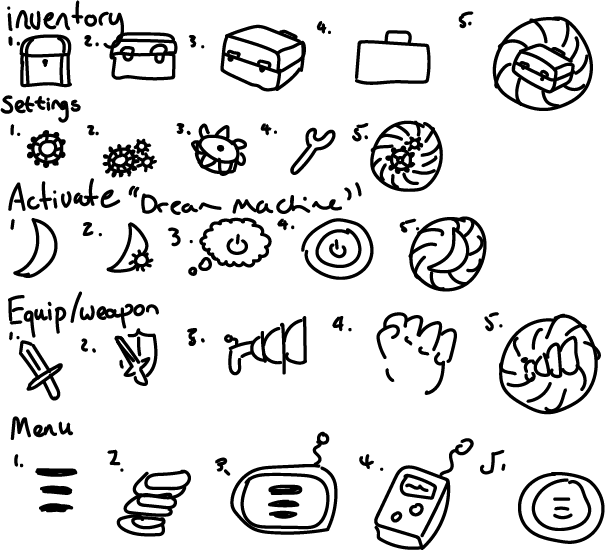 inventory
1. 2. 3. 4. 5.
Settings
1. 2. 3. 4. 5.
Activate "Dream machine"
1 2. 3. 4. 5.
Equip/weapon
1. 2. 3. 4. 5.
Menu
1. 2. 3. 4. 5.